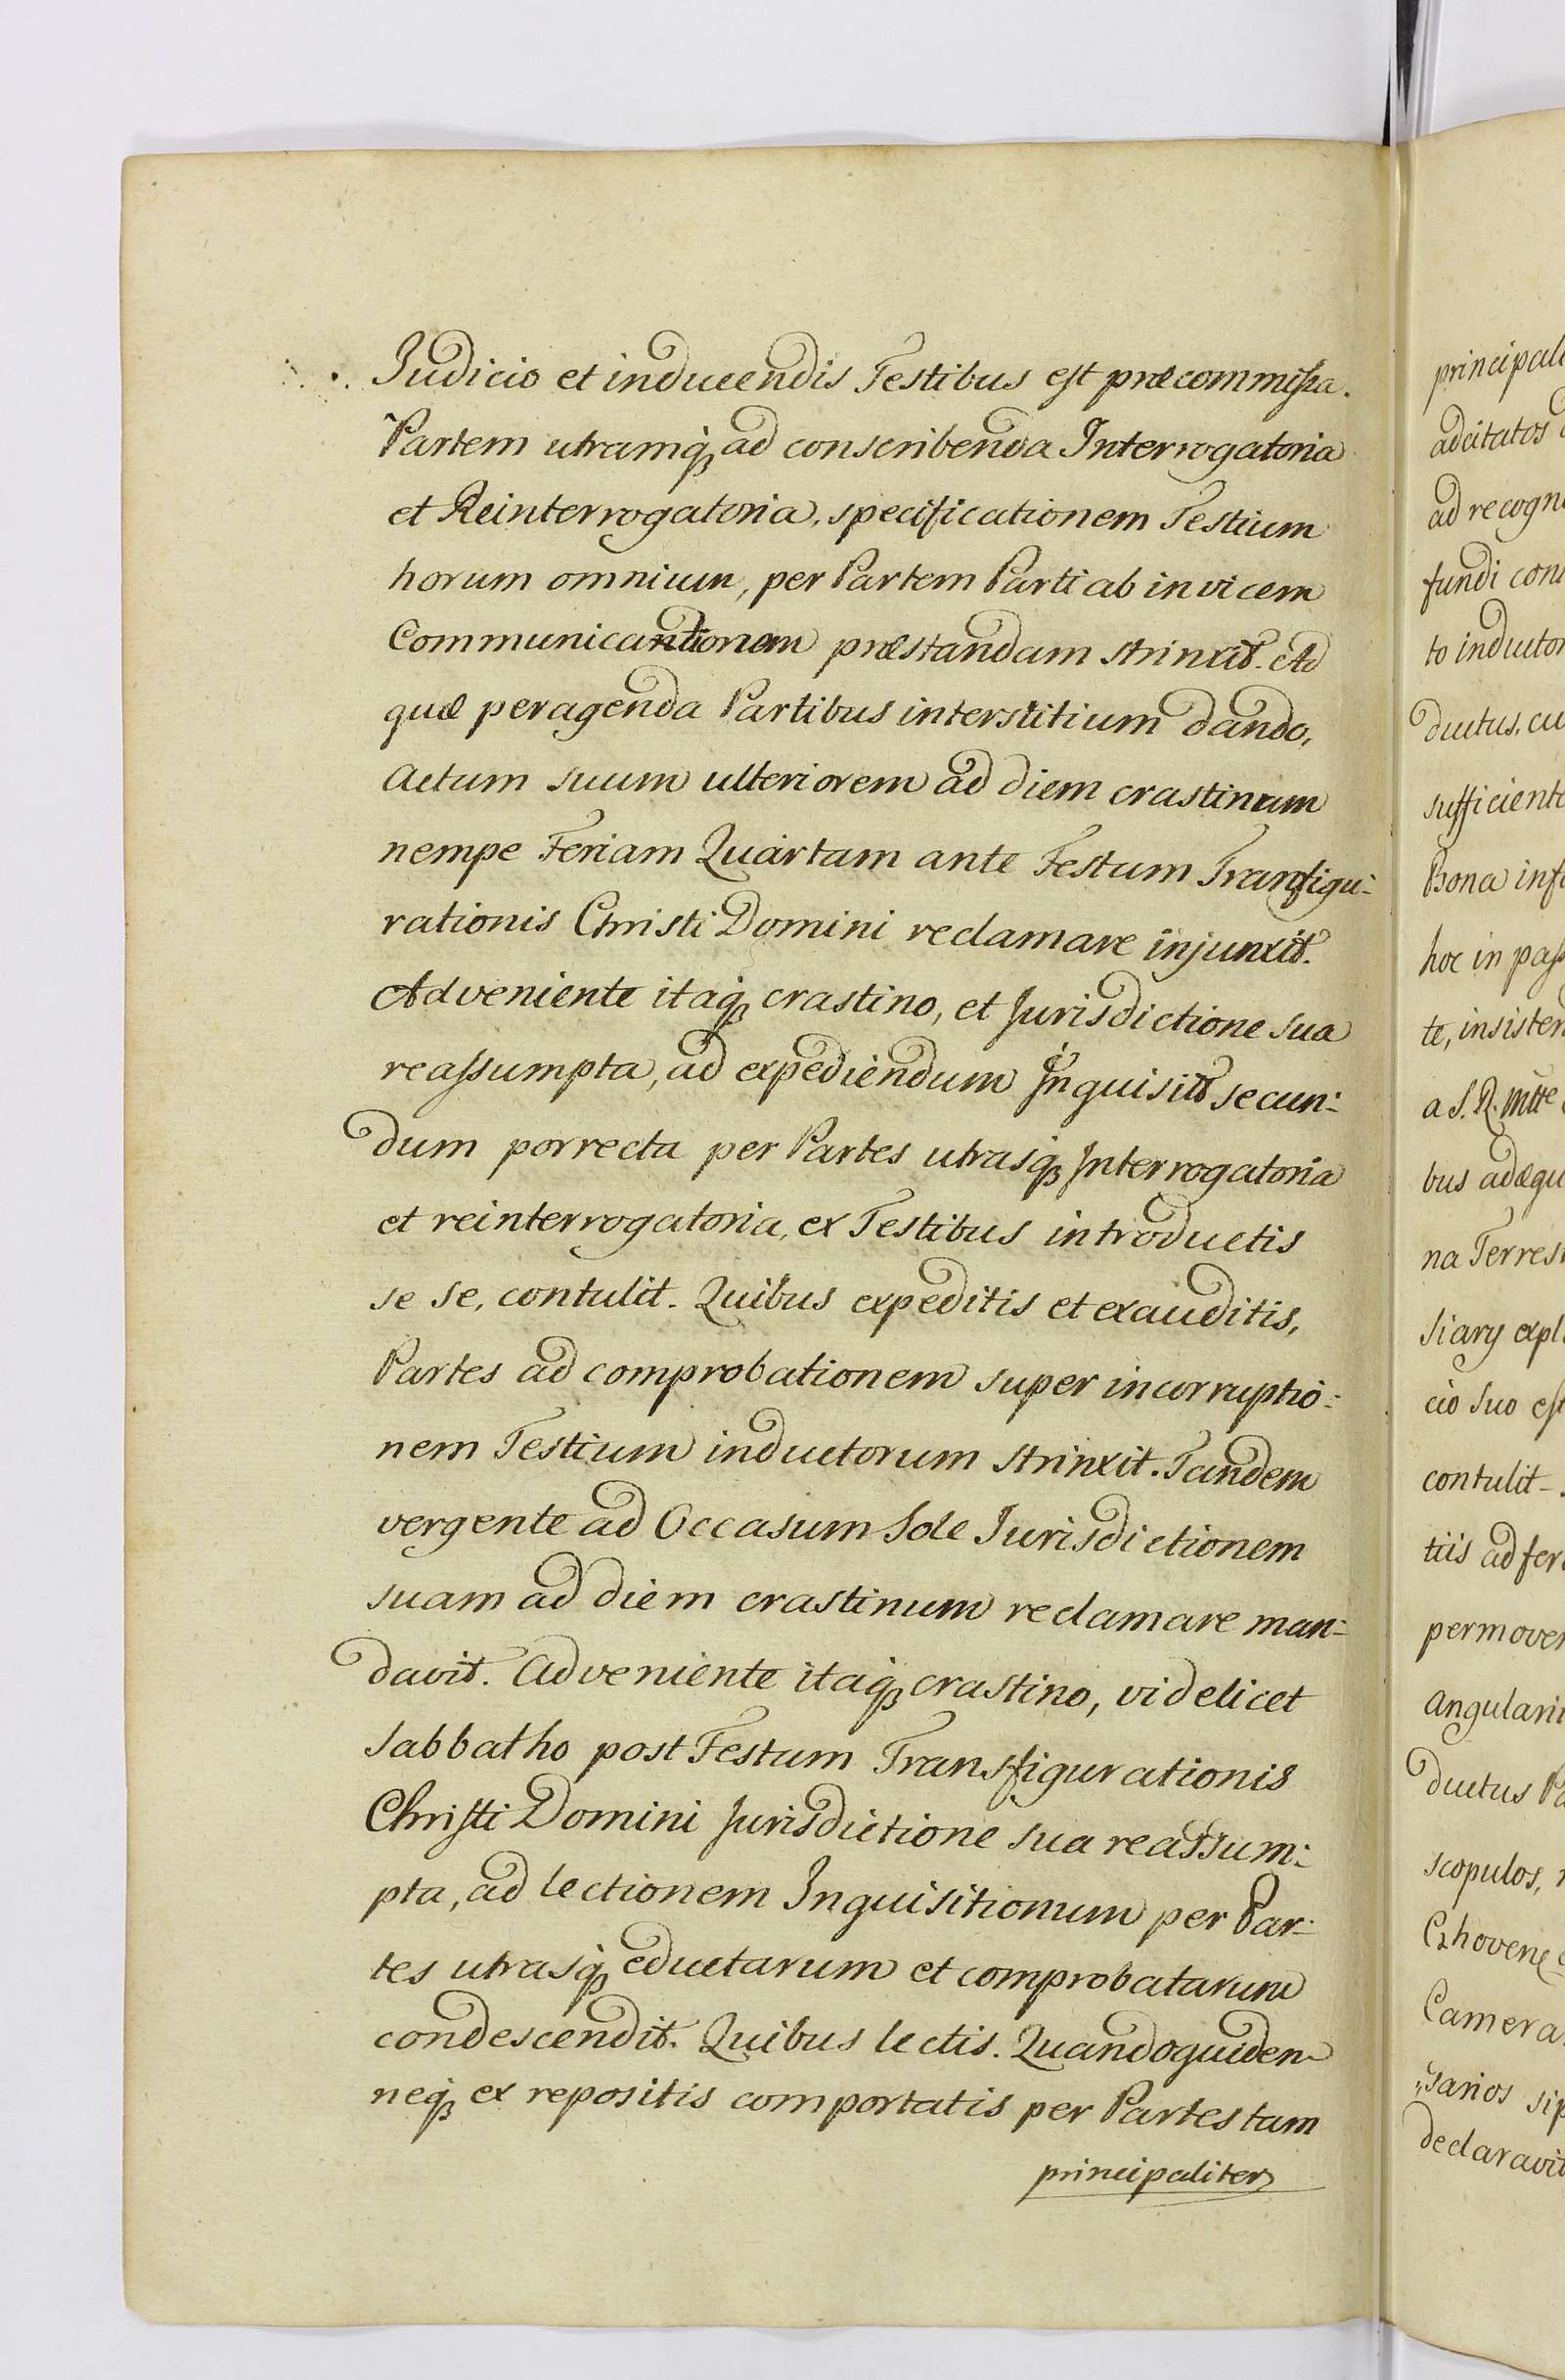 Judicio et inducendis Testibus est præcommissa.
Partem utramq; ad conscribenda Interrogatoria
et Reinterrogatoria, specificationem Testium
horum omnium, per Partem Parti ab invicem
Communicationem præstandam strinxit. Ad
quæ peragenda Partibus interstitium dando,
Actum suum ulteriorem ad diem crastinum
nempe Feriam Quartam ante Festum Transfigu-
rationis Christi Domini reclamare injunxit.
Adveniente itaq; crastino, et Jurisdictione sua
reassumpta, ad expediendum Inquisit secun-
dum porrecta per Partes utrasq; Interrogatoria
et reinterrogatoria, ex Testibus introductis
se se, contulit. Quibus expeditis et exauditis,
Partes ad comprobationem super incorruptio-
nem Testium inductorum strinxit. Tandem
vergente ad Occasum Sole Jurisdictionem
suam ad diem crastinum reclamare man-
davit. Adveniente itaq; crastino, videlicet
Sabbatho post Festum Transfigurationis
Christi Domini Jurisdictione sua reassum-
pta, ad lectionem Inquisitionum per Par-
tes utrasq; eductarum et comprobatarum
condescendit. Quibus lectis. Quandoquidem
neq; ex repositis comportatis per Partes tam
principaliter
principali
adcitatos
ad recogn
fundi con
to inductor
ductus, cu
sufficiente
Bona inf
hoc in pas
te, insisten
a S. R. Mtte
bus adæqu
na Terrest
siary expl
cio suo est
contulit.
tiis ad fer
permoven
angulari
ductus Pa
scopulos,
Camera
sarios sip
declaravit